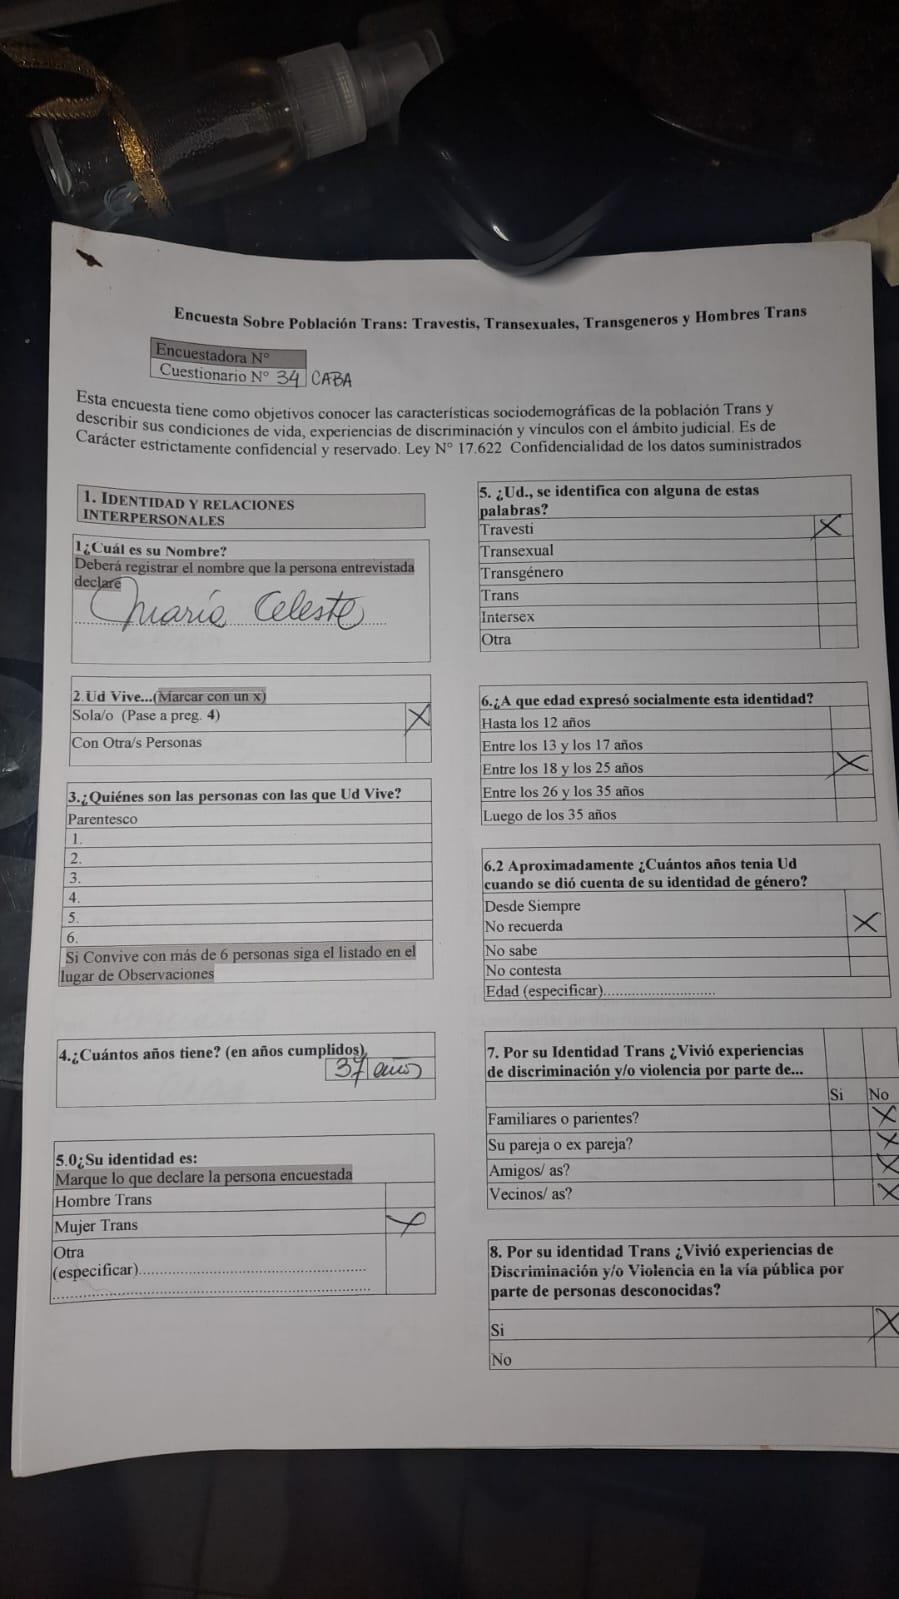 Encuesta Sobre Población Trans: Travestis, Transexuales, Transgeneros y Hombres Trans
Encuestadora N°
Cuestionario N° 34 CABA
Esta encuesta tiene como objetivos conocer las características sociodemográficas de la población Trans y
describir sus condiciones de vida, experiencias de discriminación y vínculos con el ámbito judicial. Es de
Carácter estrictamente confidencial y reservado. Ley N° 17.622 Confidencialidad de los datos suministrados
1. IDENTIDAD Y RELACIONES
INTERPERSONALES
1¿Cuál es su Nombre?
Deberá registrar el nombre que la persona entrevistada
declare
María Celeste
2.Ud Vive...(Marcar con un x)
Sola/o (Pase a preg. 4) X
Con Otra/s Personas
3.¿Quiénes son las personas con las que Ud Vive?
Parentesco
1.
2.
3.
4.
5.
6.
Si Convive con más de 6 personas siga el listado en el
lugar de Observaciones
4.¿Cuántos años tiene? (en años cumplidos)
37 años
5.0¿Su identidad es:
Marque lo que declare la persona encuestada
Hombre Trans
Mujer Trans X
Otra
(especificar)..........
5. ¿Ud., se identifica con alguna de estas
palabras?
Travesti X
Transexual
Transgénero
Trans
Intersex
Otra
6.¿A que edad expresó socialmente esta identidad?
Hasta los 12 años
Entre los 13 y los 17 años
Entre los 18 y los 25 años X
Entre los 26 y los 35 años
Luego de los 35 años
6.2 Aproximadamente ¿Cuántos años tenia Ud
cuando se dió cuenta de su identidad de género?
Desde Siempre
No recuerda X
No sabe
No contesta
Edad (especificar)..........
7. Por su Identidad Trans ¿Vivió experiencias
de discriminación y/o violencia por parte de...
Si No
Familiares o parientes? X
Su pareja o ex pareja? X
Amigos/ as? X
Vecinos/ as? X
8. Por su identidad Trans ¿Vivió experiencias de
Discriminación y/o Violencia en la vía pública por
parte de personas desconocidas?
Si X
No